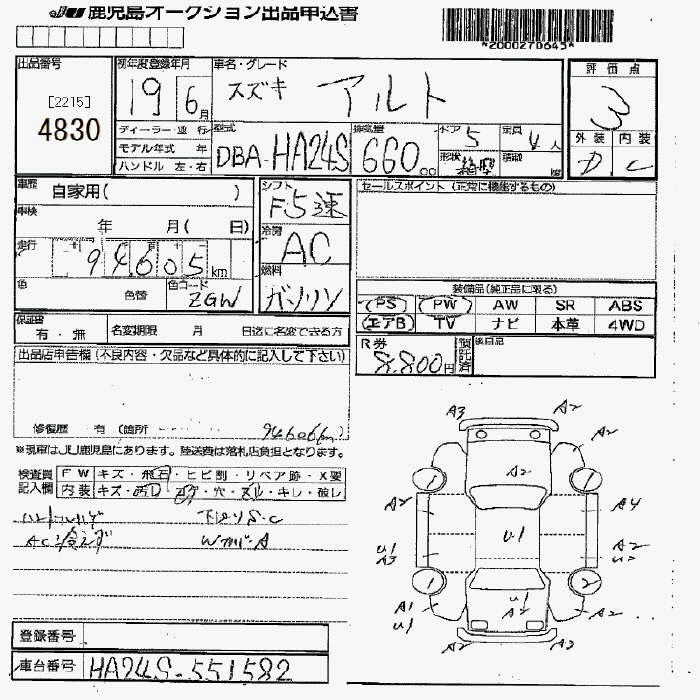 JU 鹿児島オークション出品申込書
*2000270645*
出品番号
[2215]
4830
初年度登録年月
19 6月
車名・グレード
スズキ アルト
評価点
3
外装 内装
D C
ディーラー・並行
モデル年式 年
ハンドル 左・右
型式
DBA-HA24S
排気量
660 00
ドア 5
形状 箱型
定員 4 人
積載
車歴 自家用( )
車検 年 月( 日)
走行 94605 km
色 色替
色コード ZGW
シフト F5速
冷房 AC
燃料 ガソリン
セールスポイント(正常に機能するもの)
装備品(純正品に限る)
PS PW AW SR ABS
エアB TV ナビ 本革 4WD
保証書 有・無
名変期限 月 日迄に名変できる方
R券 8.800円
預託済
後日品
出品店申告欄(不良内容・欠品など具体的に記入して下さい)
修復歴 有(箇所
94606km)
※現車はJU鹿児島にあります。陸送費は落札店負担となります。
検査員記入欄
FW キズ・飛石・ヒビ割・リペア跡・X要
内装 キズ・汚れ・コゲ・穴・スレ・キレ・破レ
ハンドルハゲ 下廻りS・C
AC冷えず WカバーA
A3 A2
A2 A2
1 1
A2
A2 A4
U1
U1 A3 A2
1 2
A1 U1 U1 A2 A2
A2 A3
登録番号
車台番号 HA24S-551582